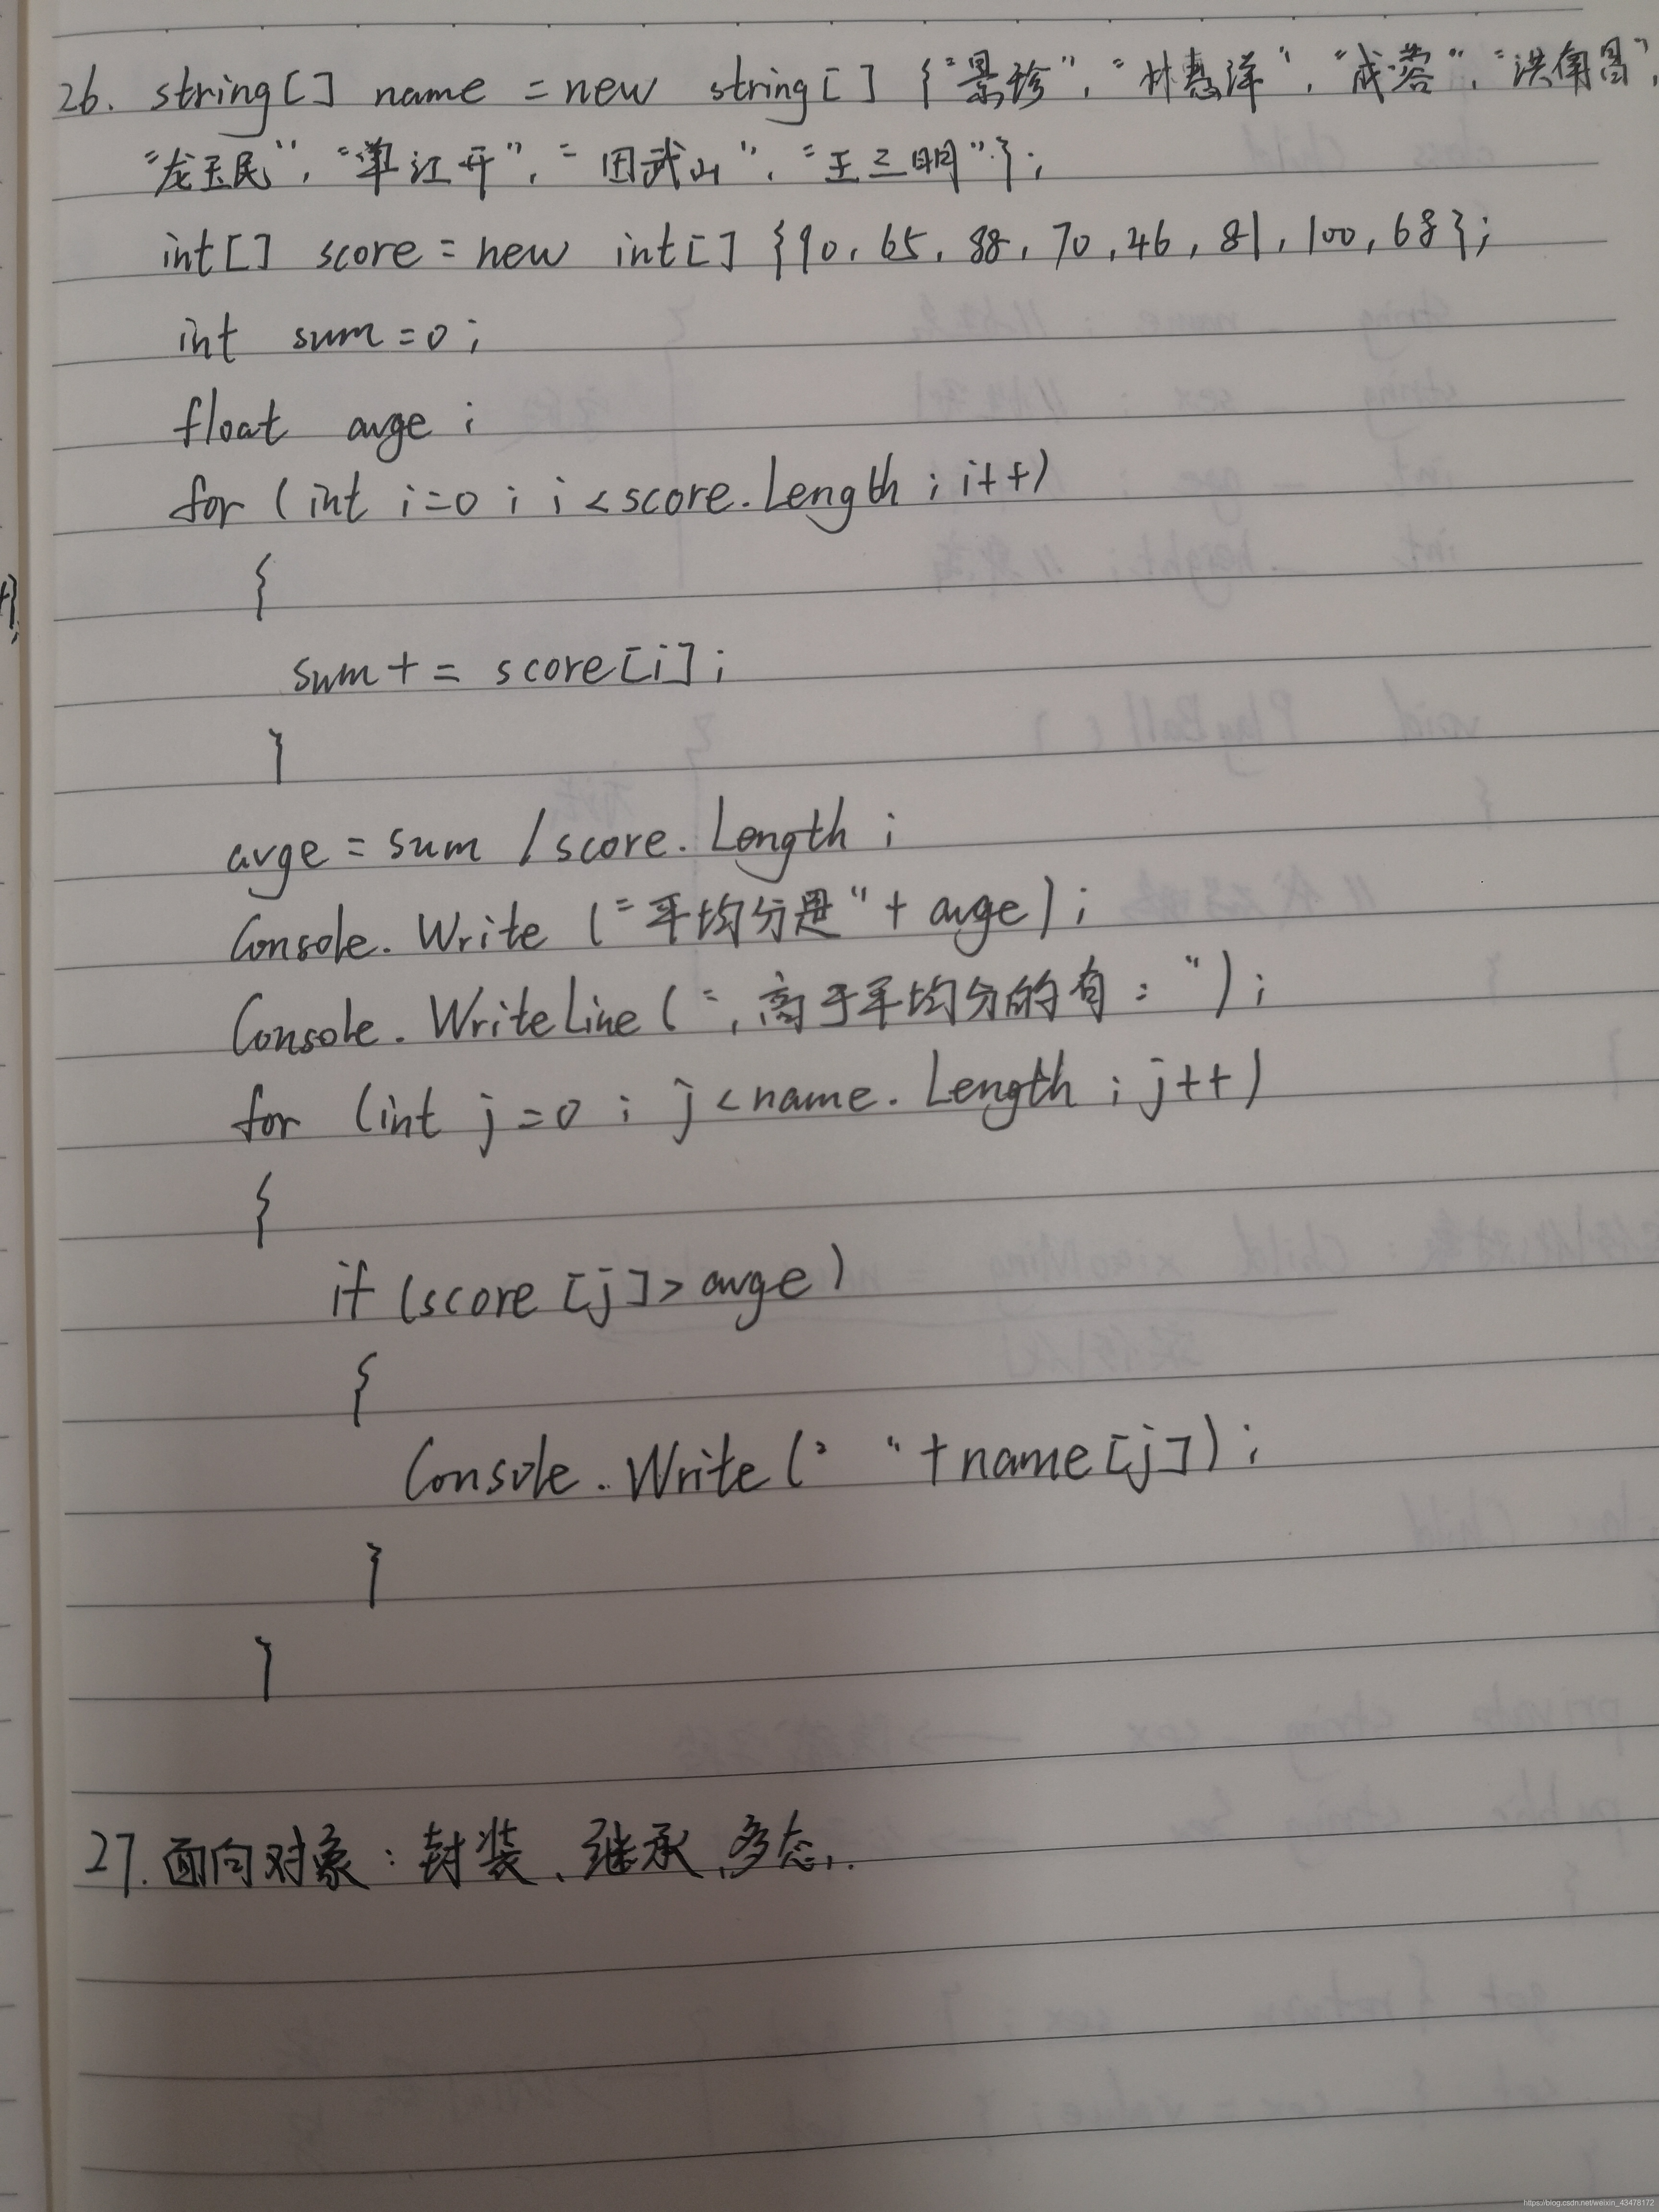 26. string[] name = new string[] {"景珍", "林惠洋", "成蓉", "洪南昌",
"龙玉民", "单江开", "田武山", "王三明"};
int[] score = new int[] {90, 65, 88, 70, 46, 81, 100, 68};
int sum = 0;
float avge;
for (int i=0; i<score.Length; i++)
{
sum += score[i];
}
avge = sum / score.Length;
Console.Write ("平均分是" + avge);
Console.WriteLine (",高于平均分的有:");
for (int j=0; j<name.Length; j++)
{
if (score[j]>avge)
{
Console.Write (" " + name[j]);
}
}
27. 面向对象:封装、继承、多态.
https://blog.csdn.net/weixin_43478172